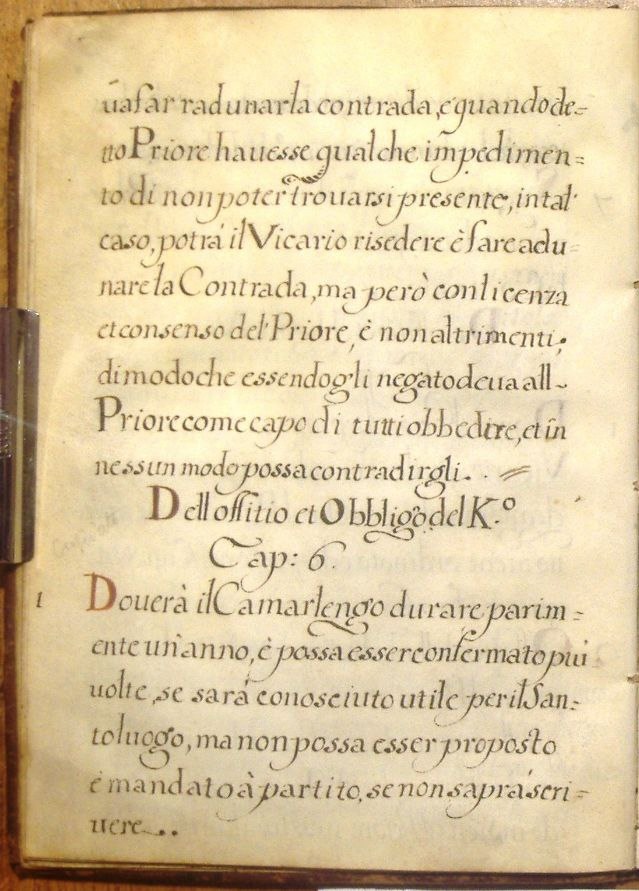 ua far radunar la contrada, e quando de=
tto Priore hauesse qualche impedimen=
to di non poter trouarsi presente, in tal'
caso, potrà il Vicario risedere è fare adu=
nare la Contrada, ma però con licenza
et consenso del' Priore, è non altrimenti,
di modo che essendogli negato deua all-
Priore come capo di tutti obbedire, et in
nessun modo possa contradirgli.
Dell offitio et Obbligo del K.º
Cap: 6.
1 Douerà il Camarlengo durare parim=
ente un'anno, è possa esser confermato piu
uolte, se sarà conosciuto utile per il San=
to luogo, ma non possa esser proposto
è mandato à partito, se non saprà scri=
uere..